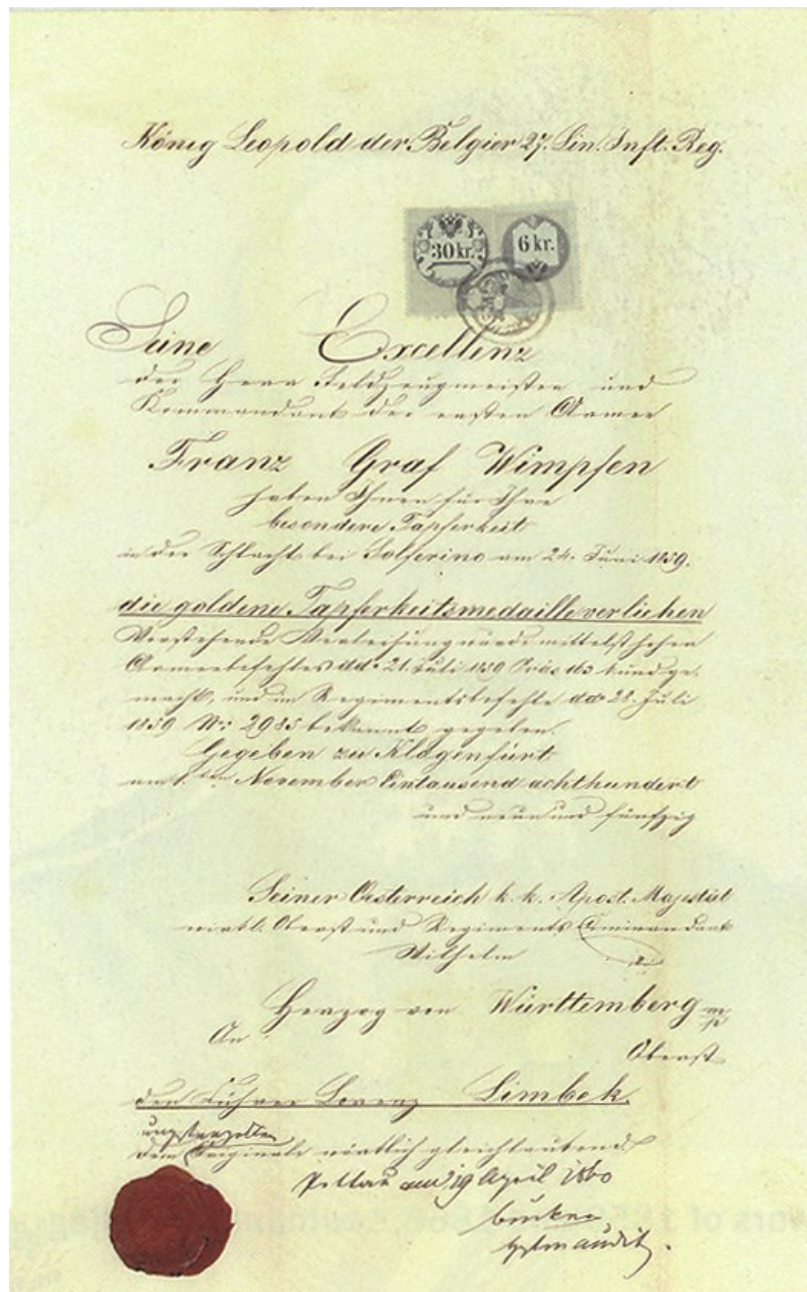 König Leopold der Belgier 27. Lin. Inft. Reg.
30 kr. 6 kr.
Seine Excellenz
der Herr Feldzeugmeister und
Kommandant der ersten Armee
Franz Graf Wimpfen
haben Ihnen für Ihre
besondere Tapferkeit
in der Schlacht bei Solferino am 24. Juni 1859.
die goldene Tapferkeitsmedaille verliehen
Vorstehende Verleihung wurde mittelst hohen
Armeebefehles ddo 21. Juli 1859 Präs 163 kund ge-
macht, und im Regimentsbefehle ddo 28. Juli
1859 Nr. 2985 bekannt gegeben.
Gegeben zu Klagenfurt
am 1. ten November Eintausend achthundert
und neun und fünfzig
Seiner Oesterreich k. k. Apost. Majestät
wirkl. Oberst und Regiments Comman dant
Wilhelm
Herzog von Württemberg mp
An
Oberst
den Führer Lorenz Limbek.
dem Originale wörtlich gleichlautend
Pettau am 19 April 1860